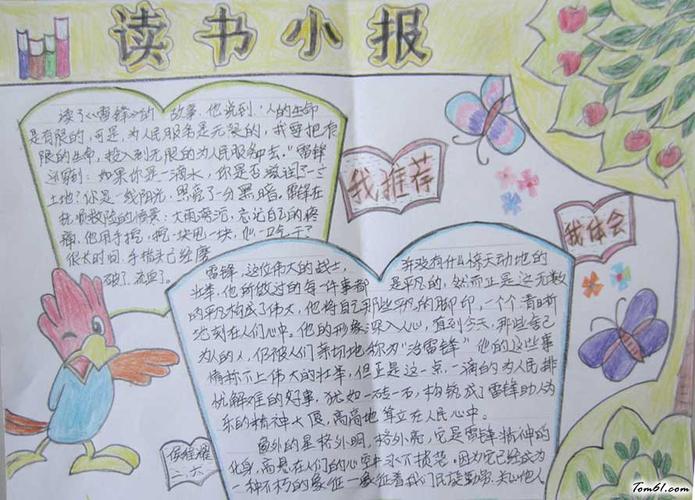 读书小报
读了《雷锋》的故事，他说到：“人的生命
是有限的，可是，为人民服务是无限的，我要把有
限的生命，投入到无限的为人民服务中去。”雷锋
还写到：如果你是一滴水，你是否滋润了一寸
土地？你是一线阳光，照亮了一分黑暗。雷锋在
抗洪救险的情景：大雨滂沱，忘记自己的疼
痛，他用手挖，挖一块甩一块，他一口气干了
很长时间，手指头已经磨
破了，流血了。
我推荐
我体会
雷锋，这位伟大的战士，
并没有什么惊天动地的
壮举，他所做过的每一件事都
是平凡的，然而正是这无数
的平凡构成了伟大，他将自己那些平凡的脚印，一个个清晰
地刻在人们心中。他的形象深入人心，直到今天，那些舍己
为人的人，仍被人们亲切地称为“活雷锋”他的这些事
情称不上伟大的壮举，但正是这一点一滴的为人民排
忧解难的好事，犹如一砖一石，构筑成了雷锋助人为
乐的精神大厦，高高地耸立在人民心中。
窗外的星格外明，格外亮，它是雷锋精神的
化身，高悬在人们的心空永不损落，因为它已经成为
一种不朽的象征——象征着我们民族勤劳、关心他人
二、六
Tom61.com